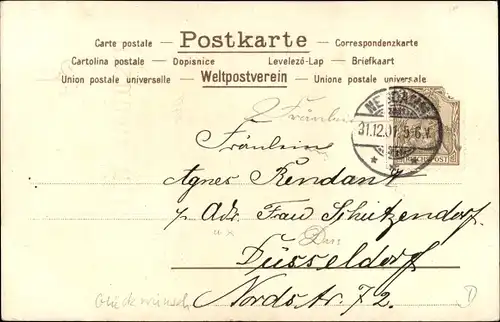 Carte postale — Postkarte — Correspondenzkarte
Cartolina postale — Dopisnice Levelező-Lap — Briefkaart
Union postale universelle — Weltpostverein — Unione postale universale
31.12.01. 5-6
REICHSPOST
Fräulein
Fräulein
Agnes Rendant
p. Adr. Frau Schutzendorf.
Düsseldorf
Nordstr. 72.